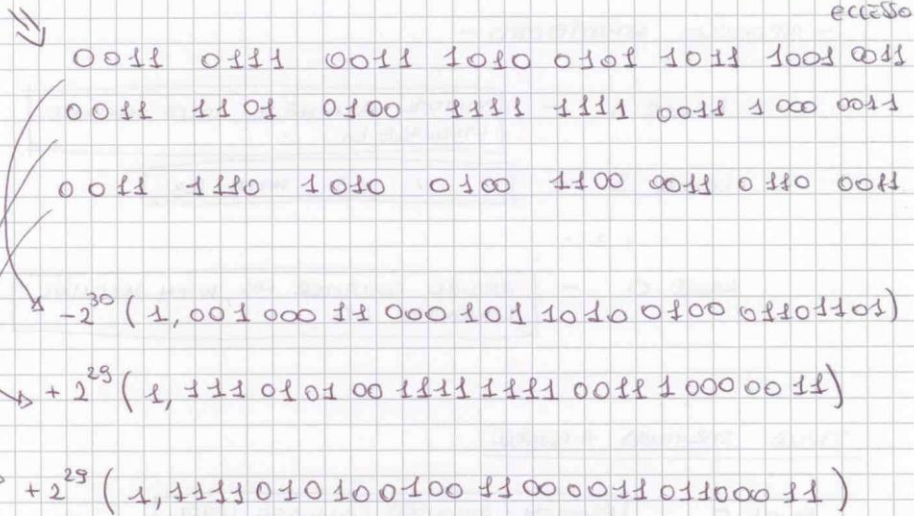 eccesso
0011 0111 0011 1010 0101 1011 1001 0011
0011 1101 0100 1111 1111 0011 1000 0011
0011 1110 1010 0100 1100 0011 0110 0011
-2^30 (1,001 000 11 000 101 1010 0100 01101101)
+ 2^29 (1, 111 0101 00 1111 1111 0011 1 000 0011)
+2^29 (1,1111010100100 11000011011000 11)